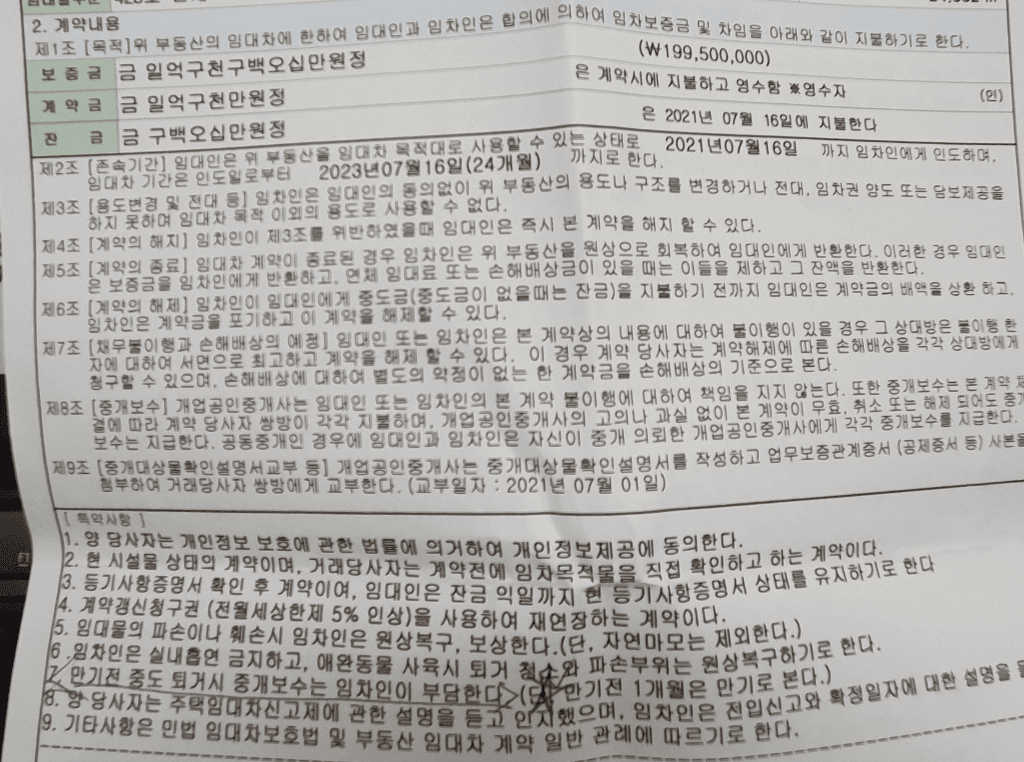 2. 계약내용
제1조 [목적]위 부동산의 임대차에 한하여 임대인과 임차인은 합의에 의하여 임차보증금 및 차임을 아래와 같이 지불하기로 한다.
보 증 금 금 일억구천구백오십만원정 (₩199,500,000)
계 약 금 금 일억구천만원정 은 계약시에 지불하고 영수함 ※영수자 (인)
잔 금 금 구백오십만원정 은 2021년 07월 16일에 지불한다
제2조 [존속기간] 임대인은 위 부동산을 임대차 목적대로 사용할 수 있는 상태로 2021년07월16일 까지 임차인에게 인도하며,
임대차 기간은 인도일로부터 2023년07월16일(24개월) 까지로 한다.
제3조 [용도변경 및 전대 등] 임차인은 임대인의 동의없이 위 부동산의 용도나 구조를 변경하거나 전대, 임차권 양도 또는 담보제공을
하지 못하며 임대차 목적 이외의 용도로 사용할 수 없다.
제4조 [계약의 해지] 임차인이 제3조를 위반하였을때 임대인은 즉시 본 계약을 해지 할 수 있다.
제5조 [계약의 종료] 임대차 계약이 종료된 경우 임차인은 위 부동산을 원상으로 회복하여 임대인에게 반환한다. 이러한 경우 임대인
은 보증금을 임차인에게 반환하고, 연체 임대료 또는 손해배상금이 있을 때는 이들을 제하고 그 잔액을 반환한다.
제6조 [계약의 해제] 임차인이 임대인에게 중도금(중도금이 없을때는 잔금)을 지불하기 전까지 임대인은 계약금의 배액을 상환 하고,
임차인은 계약금을 포기하고 이 계약을 해제할 수 있다.
제7조 [채무불이행과 손해배상의 예정] 임대인 또는 임차인은 본 계약상의 내용에 대하여 불이행이 있을 경우 그 상대방은 불이행 한
자에 대하여 서면으로 최고하고 계약을 해제 할 수 있다. 이 경우 계약 당사자는 계약해제에 따른 손해배상을 각각 상대방에게
청구할 수 있으며, 손해배상에 대하여 별도의 약정이 없는 한 계약금을 손해배상의 기준으로 본다.
제8조 [중개보수] 개업공인중개사는 임대인 또는 임차인의 본 계약 불이행에 대하여 책임을 지지 않는다. 또한 중개보수는 본 계약 체
결에 따라 계약 당사자 쌍방이 각각 지불하며, 개업공인중개사의 고의나 과실 없이 본 계약이 무효, 취소 또는 해제 되어도 중개
보수는 지급한다. 공동중개인 경우에 임대인과 임차인은 자신이 중개 의뢰한 개업공인중개사에게 각각 중개보수를 지급한다.
제9조 [중개대상물확인설명서교부 등] 개업공인중개사는 중개대상물확인설명서를 작성하고 업무보증관계증서 (공제증서 등) 사본을
첨부하여 거래당사자 쌍방에게 교부한다. (교부일자 : 2021년 07월 01일)
[ 특약사항 ]
1. 양 당사자는 개인정보 보호에 관한 법률에 의거하여 개인정보제공에 동의한다.
2. 현 시설물 상태의 계약이며, 거래당사자는 계약전에 임차목적물을 직접 확인하고 하는 계약이다.
3. 등기사항증명서 확인 후 계약이여, 임대인은 잔금 익일까지 현 등기사항증명서 상태를 유지하기로 한다
4. 계약갱신청구권 (전월세상한제 5% 인상)을 사용하여 재연장하는 계약이다.
5. 임대물의 파손이나 훼손시 임차인은 원상복구, 보상한다.(단, 자연마모는 제외한다.)
6. 임차인은 실내흡연 금지하고, 애완동물 사육시 퇴거 청소와 파손부위는 원상복구하기로 한다.
7. 만기전 중도 퇴거시 중개보수는 임차인이 부담한다 만기전 1개월은 만기로 본다.)
8. 양 당사자는 주택임대차신고제에 관한 설명을 듣고 인지했으며, 임차인은 전입신고와 확정일자에 대한 설명을
9. 기타사항은 민법 임대차보호법 및 부동산 임대차 계약 일반 관례에 따르기로 한다.